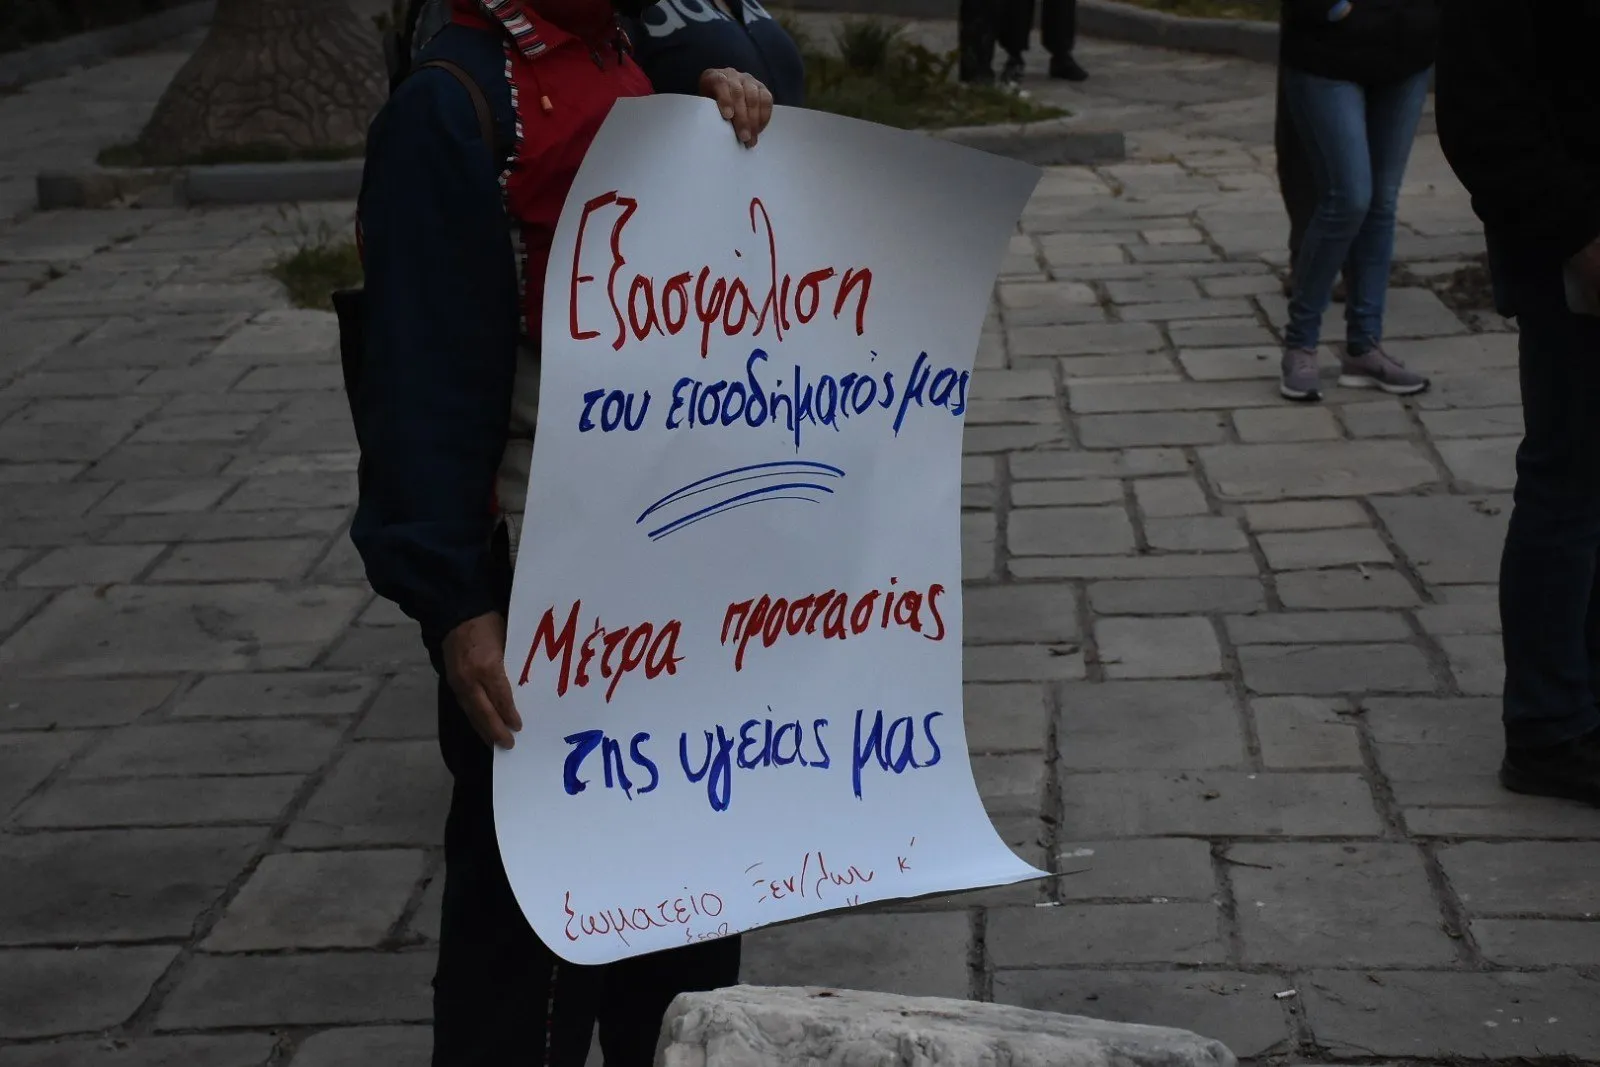 Εξασφάλιση
του εισοδήματός μας
Μέτρα προστασίας
της υγείας μας
Σωματείο Ξεν/λων κ'